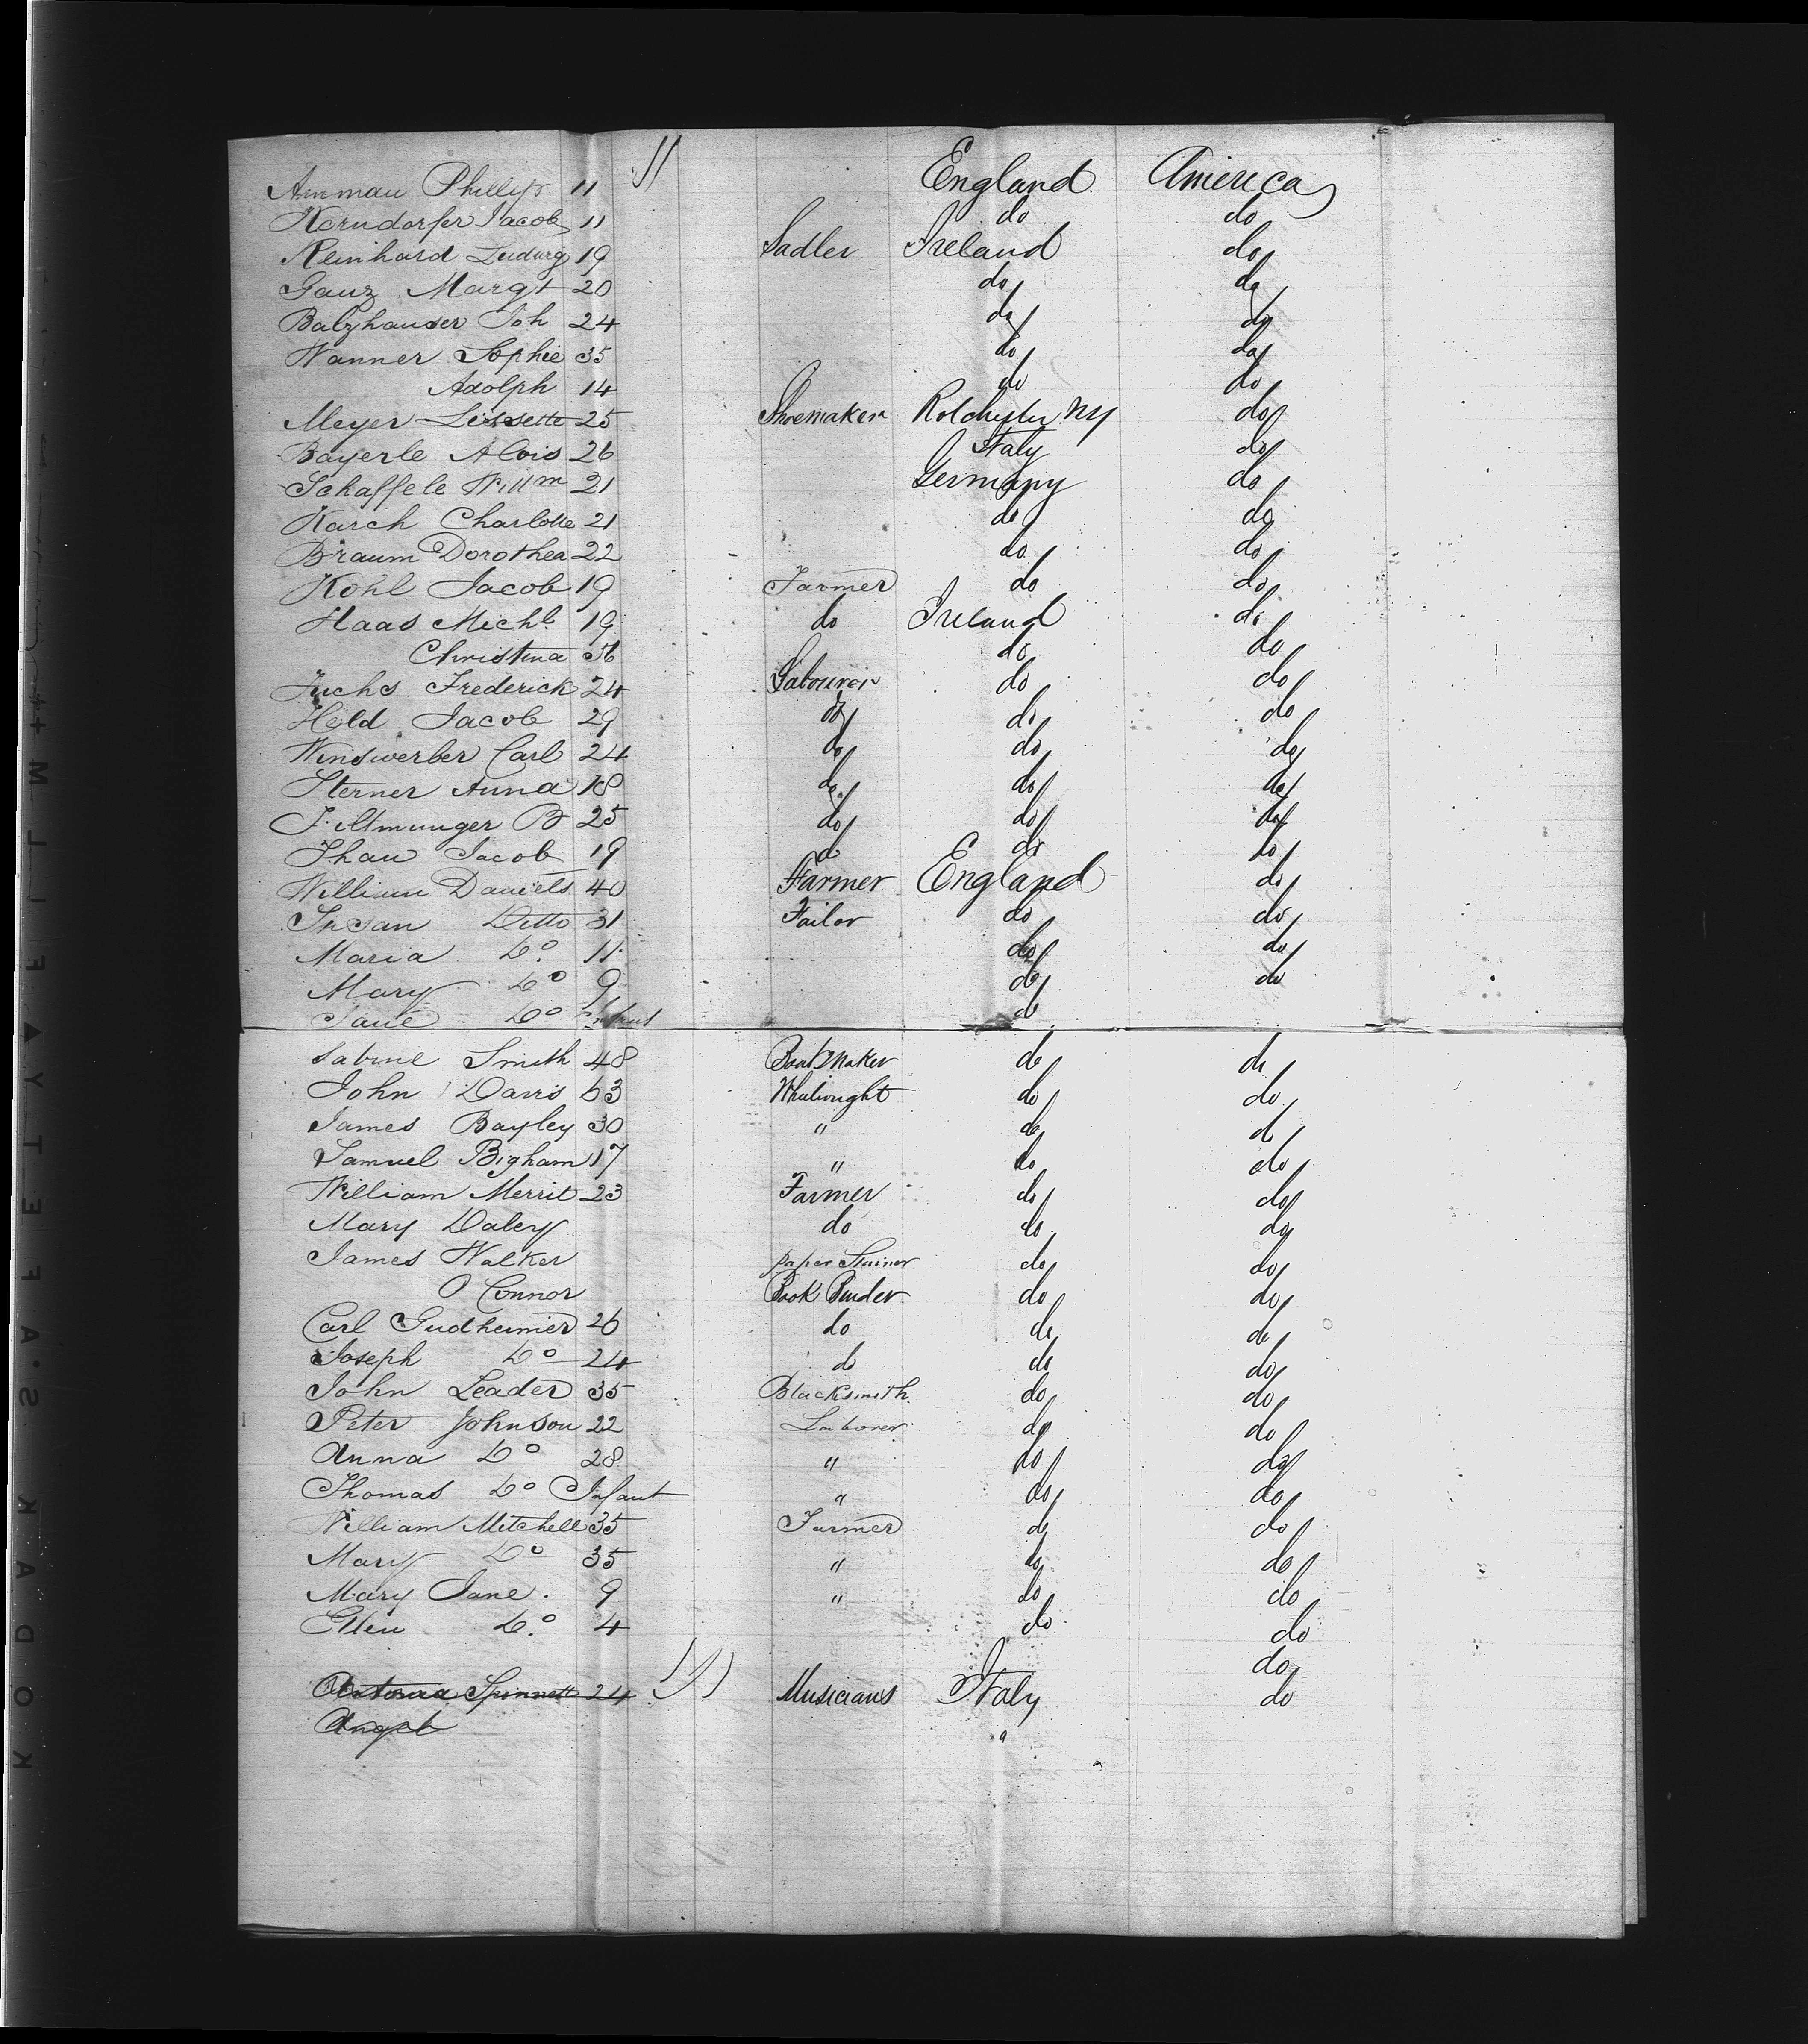 Amman Phillip 11 England America
Korndorfer Jacob 11 do do
Reinhard Ludwig 19 Sadler Ireland do
Ganz Margt 20 do do
Balzhauser Joh 24 do do
Wanner Sophie 35 do do
Adolph 14 do do
Meyer Lissette 25 Shoemaker Rotchester NY do
Bayerle Alois 26 Italy do
Schaffele Willm 21 Germany do
Karch Charlotte 21 do do
Braum Dorothea 22 do do
Kohl Jacob 19 Farmer do do
Haas Michl 19 do Ireland do
Christina 56 do do
Fuchs Frederick 24 Labourer do do
Held Jacob 29 do do do
Windwerber Carl 24 do do do
Sterner Anna 18 do do do
B 25 do do do
Thau Jacob 19 do do do
William Daniels 40 Farmer England do
Susan Ditto 31 Tailor do do
Maria Do 11 do do
Mary Do 9 do do
Jane Do Infant do
Sabine Smith 48 Boot Maker do do
John Davis 63 Whelwright do do
James Bayley 30 " do do
Samuel Bigham 17 " do do
William Merrit 23 Farmer do do
Mary Daley do do do
James Walker paper Stainer do do
O Connor Book Binder do do
Carl Gudheimer 26 do do do
Joseph Do 24 do do do
John Leader 35 Blacksmith do do
Peter Johnson 22 Laborer do do
Anna Do 28 " do do
Thomas Do Infant " do do
William Mitchell 35 Farmer do do
Mary Do 35 " do do
Mary Jane . 9 " do do
Ellen Do 4 do do
do
Antonia Spinnett 24 Musicians Italy do
Angel "
KODAK SAFETY FILM